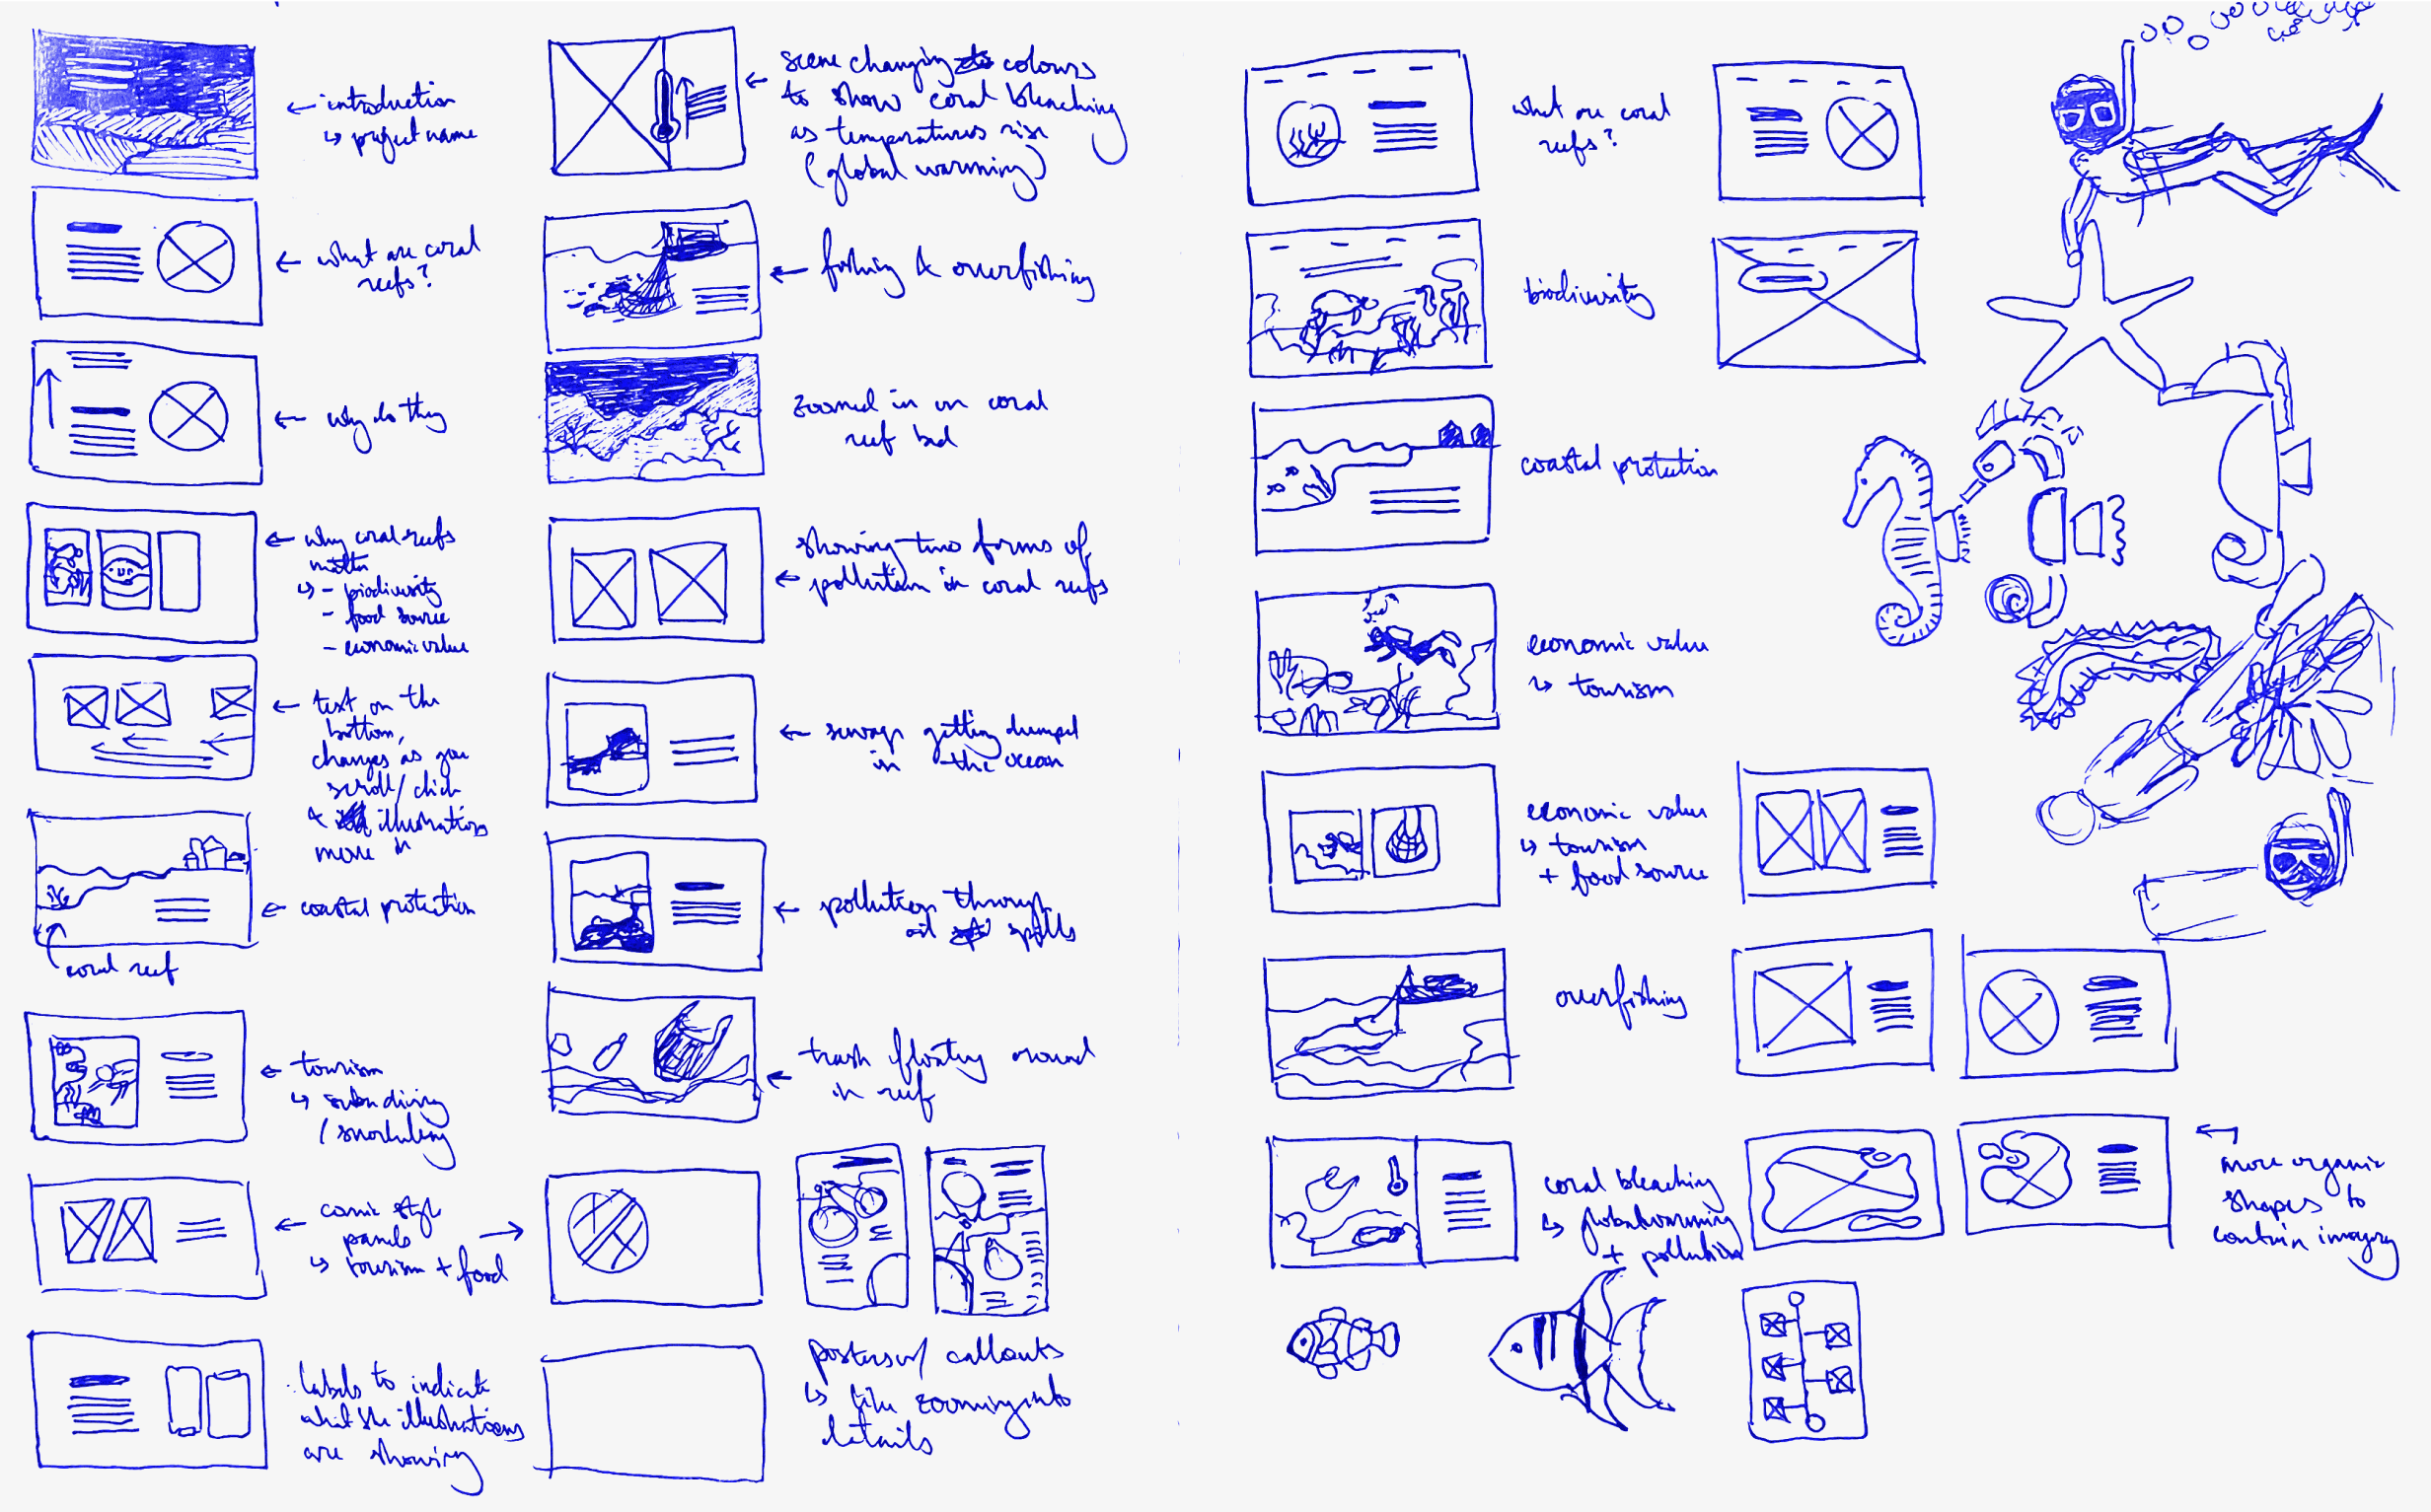 ← introduction
↳ project name
← what are coral
reefs?
← why do they
← why coral reefs
matter
↳ - biodiversity
- food source
- economic value
← text on the
bottom,
changes as you
scroll/click
& illustrations
move in
← coastal protection
coral reef
← tourism
↳ scuba diving
/ snorkeling
← comic style
panels
↳ tourism + food
labels to indicate
what the illustrations
are showing
← scene changing colours
to show coral bleaching
as temperatures rise
(global warming)
← fishing & overfishing
zoomed in on coral
reef bed
showing two forms of
← pollution in coral reefs
← sewage getting dumped
in the ocean
← pollution through
oil spills
← trash floating around
in reef
posters w/ callouts
↳ like zooming into
details
what are coral
reefs?
biodiversity
coastal protection
economic value
↳ tourism
economic value
↳ tourism
+ food source
overfishing
coral bleaching
↳ global warming
+ pollution
more organic
shapes to
contain imagery